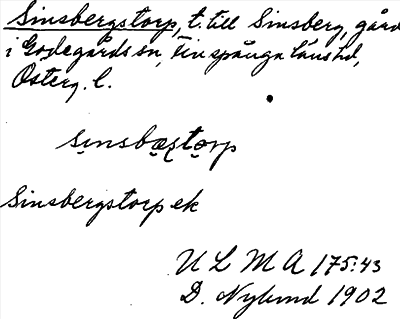 Sinsbergstorp, t. till Sinsberg, gård
i Godegårds sn, Finspånga läns hd,
Österg. l.
sinsbæstorp
Sinsbergstorp ek
ULMA 175:43
D. Nylund 1902